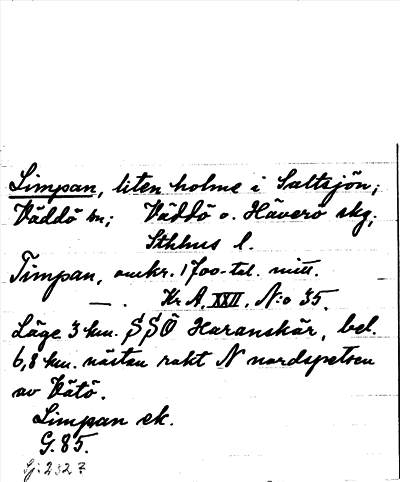 Limpan, liten holme i Saltsjön;
Väddö sn; Väddö o. Häverö skg,
Sthhus l.
Timpan, omkr. 1700-tal. mitt.
— . Kr. A. XXII. N:o 35.
Läge 3 km. SSÖ Haranskär, bel.
6,8 km. nästan rakt N nordspetsen
av Vätö.
Limpan ek.
G. 85.
Sj: 232